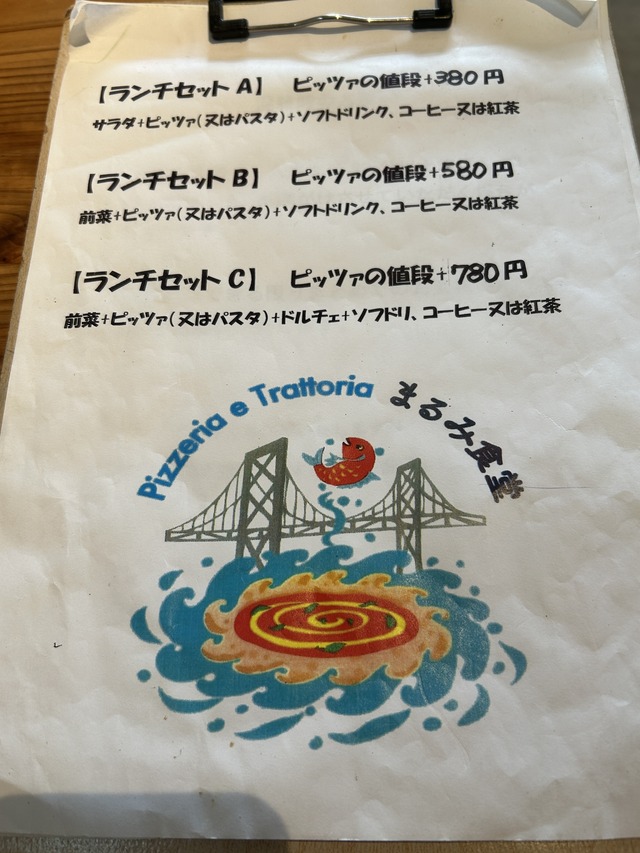 【ランチセット A】 ピッツァの値段+380円
サラダ+ピッツァ(又はパスタ)+ソフトドリンク、コーヒー又は紅茶
【ランチセット B】 ピッツァの値段+580円
前菜+ピッツァ(又はパスタ)+ソフトドリンク、コーヒー又は紅茶
【ランチセット C】 ピッツァの値段+780円
前菜+ピッツァ(又はパスタ)+ドルチェ+ソフドリ、コーヒー又は紅茶
Pizzeria e Trattoria まるみ食堂